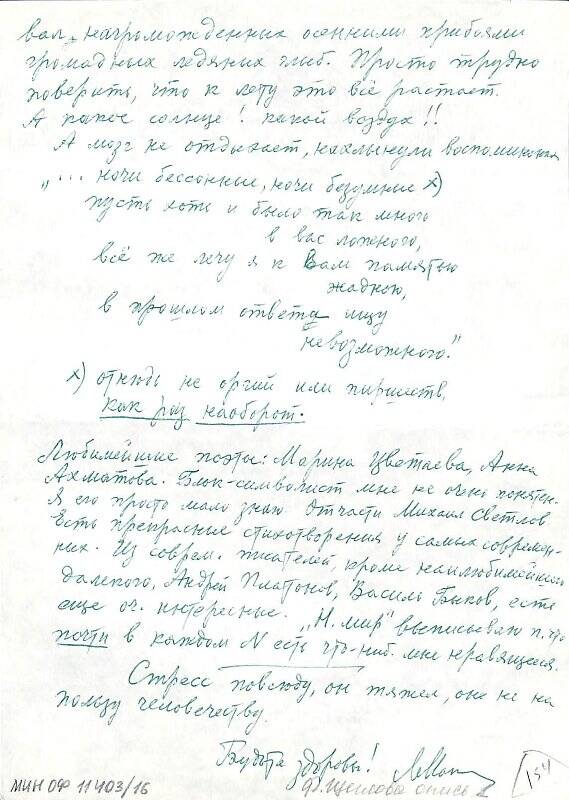 вал, нагроможденных осенними прибоями
громадных ледяных глыб. Просто трудно
поверить, что к лету это всё растает.
А какое солнце! какой воздух!!
А мозг не отдыхает, нахлынули воспоминания
„... ночи бессонные, ночи безумные х)
пусть хотя и было так много
в вас ложного,
всё же лечу я к Вам памятью
жадною,
в прошлом ответа ищу
невозможного."
х) отнюдь не оргий или пиршеств,
как раз наоборот.
Любимейшие поэты: Марина Цветаева, Анна
Ахматова. Блок-символист мне не очень понятен.
Я его просто мало знаю Отчасти Михаил Светлов
Есть прекрасные стихотворения у самых современ-
ных. Из соврем. писателей, кроме наилюбимейшего
далекого, Андрей Платонов, Василь Быков, есть
еще оч. интересные. „Н. мир" выписываю п.что
почти в каждом N есть что-ниб. мне нравящееся.
Стресс повсюду, он тяжел, он не на
пользу человечеству.
Будьте здоровы!
154
МИН ОФ 11403/16
ф. Щеглова опись 2